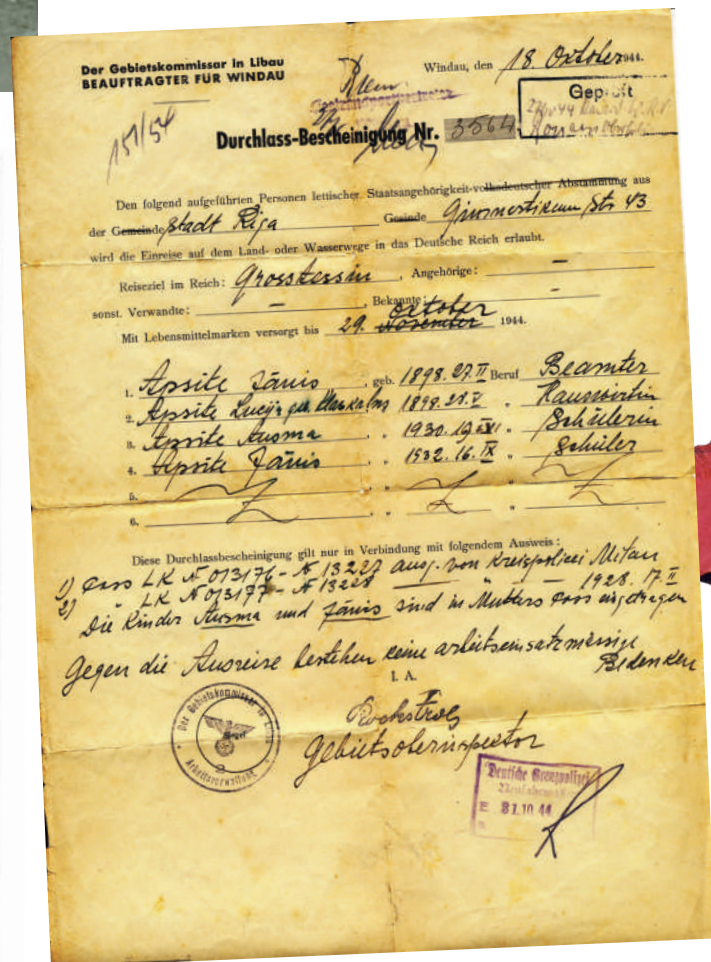 Der Gebietskommissar in Libau
BEAUFTRAGTER FÜR WINDAU
Windau, den 18. Oktober 1944.
Geprüft
151/54
Durchlass-Bescheinigung Nr. 3564
Den folgend aufgeführten Personen lettischer Staatsangehörigkeit-volksdeutscher Abstammung aus
der Gemeinde Stadt Riga Gesinde Str 43
wird die Einreise auf dem Land- oder Wasserwege in das Deutsche Reich erlaubt.
Reiseziel im Reich: Grosstessin, Angehörige: —
sonst. Verwandte: —, Bekannte: —
Oktober
Mit Lebensmittelmarken versorgt bis 29. November 1944.
1. Apsite Jānis, geb. 1898. 27. II Beruf Beamter
2. Apsite Lucija geb. 1898. 28. V " Hauswirtin
3. Apsite Ausma, " 1930. 19. " Schülerin
4. Apsite Jānis, " 1932. 16. IX " Schüler
5.
6.
Diese Durchlassbescheinigung gilt nur in Verbindung mit folgendem Ausweis:
1) Pass LK № 013176 - № 13227 ausg. von Kreispolizei Mitau
2) " LK № 013177 - № 13228 " — 1928. 17. II
Die Kinder Ausma und Jānis sind in Mutters Pass eingetragen
Gegen die Ausreise bestehen keine arbeitseinsatzmässige
Bedenken
I. A.
Gebietsoberinspektor
Der Gebietskommissar in Libau
Arbeitsverwaltung
Deutsche Grenzpolizei
E 31.10.44